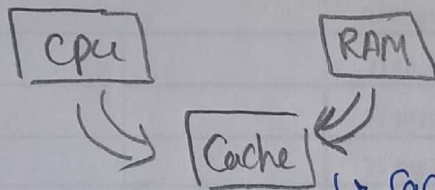 Cpu
RAM
Cache